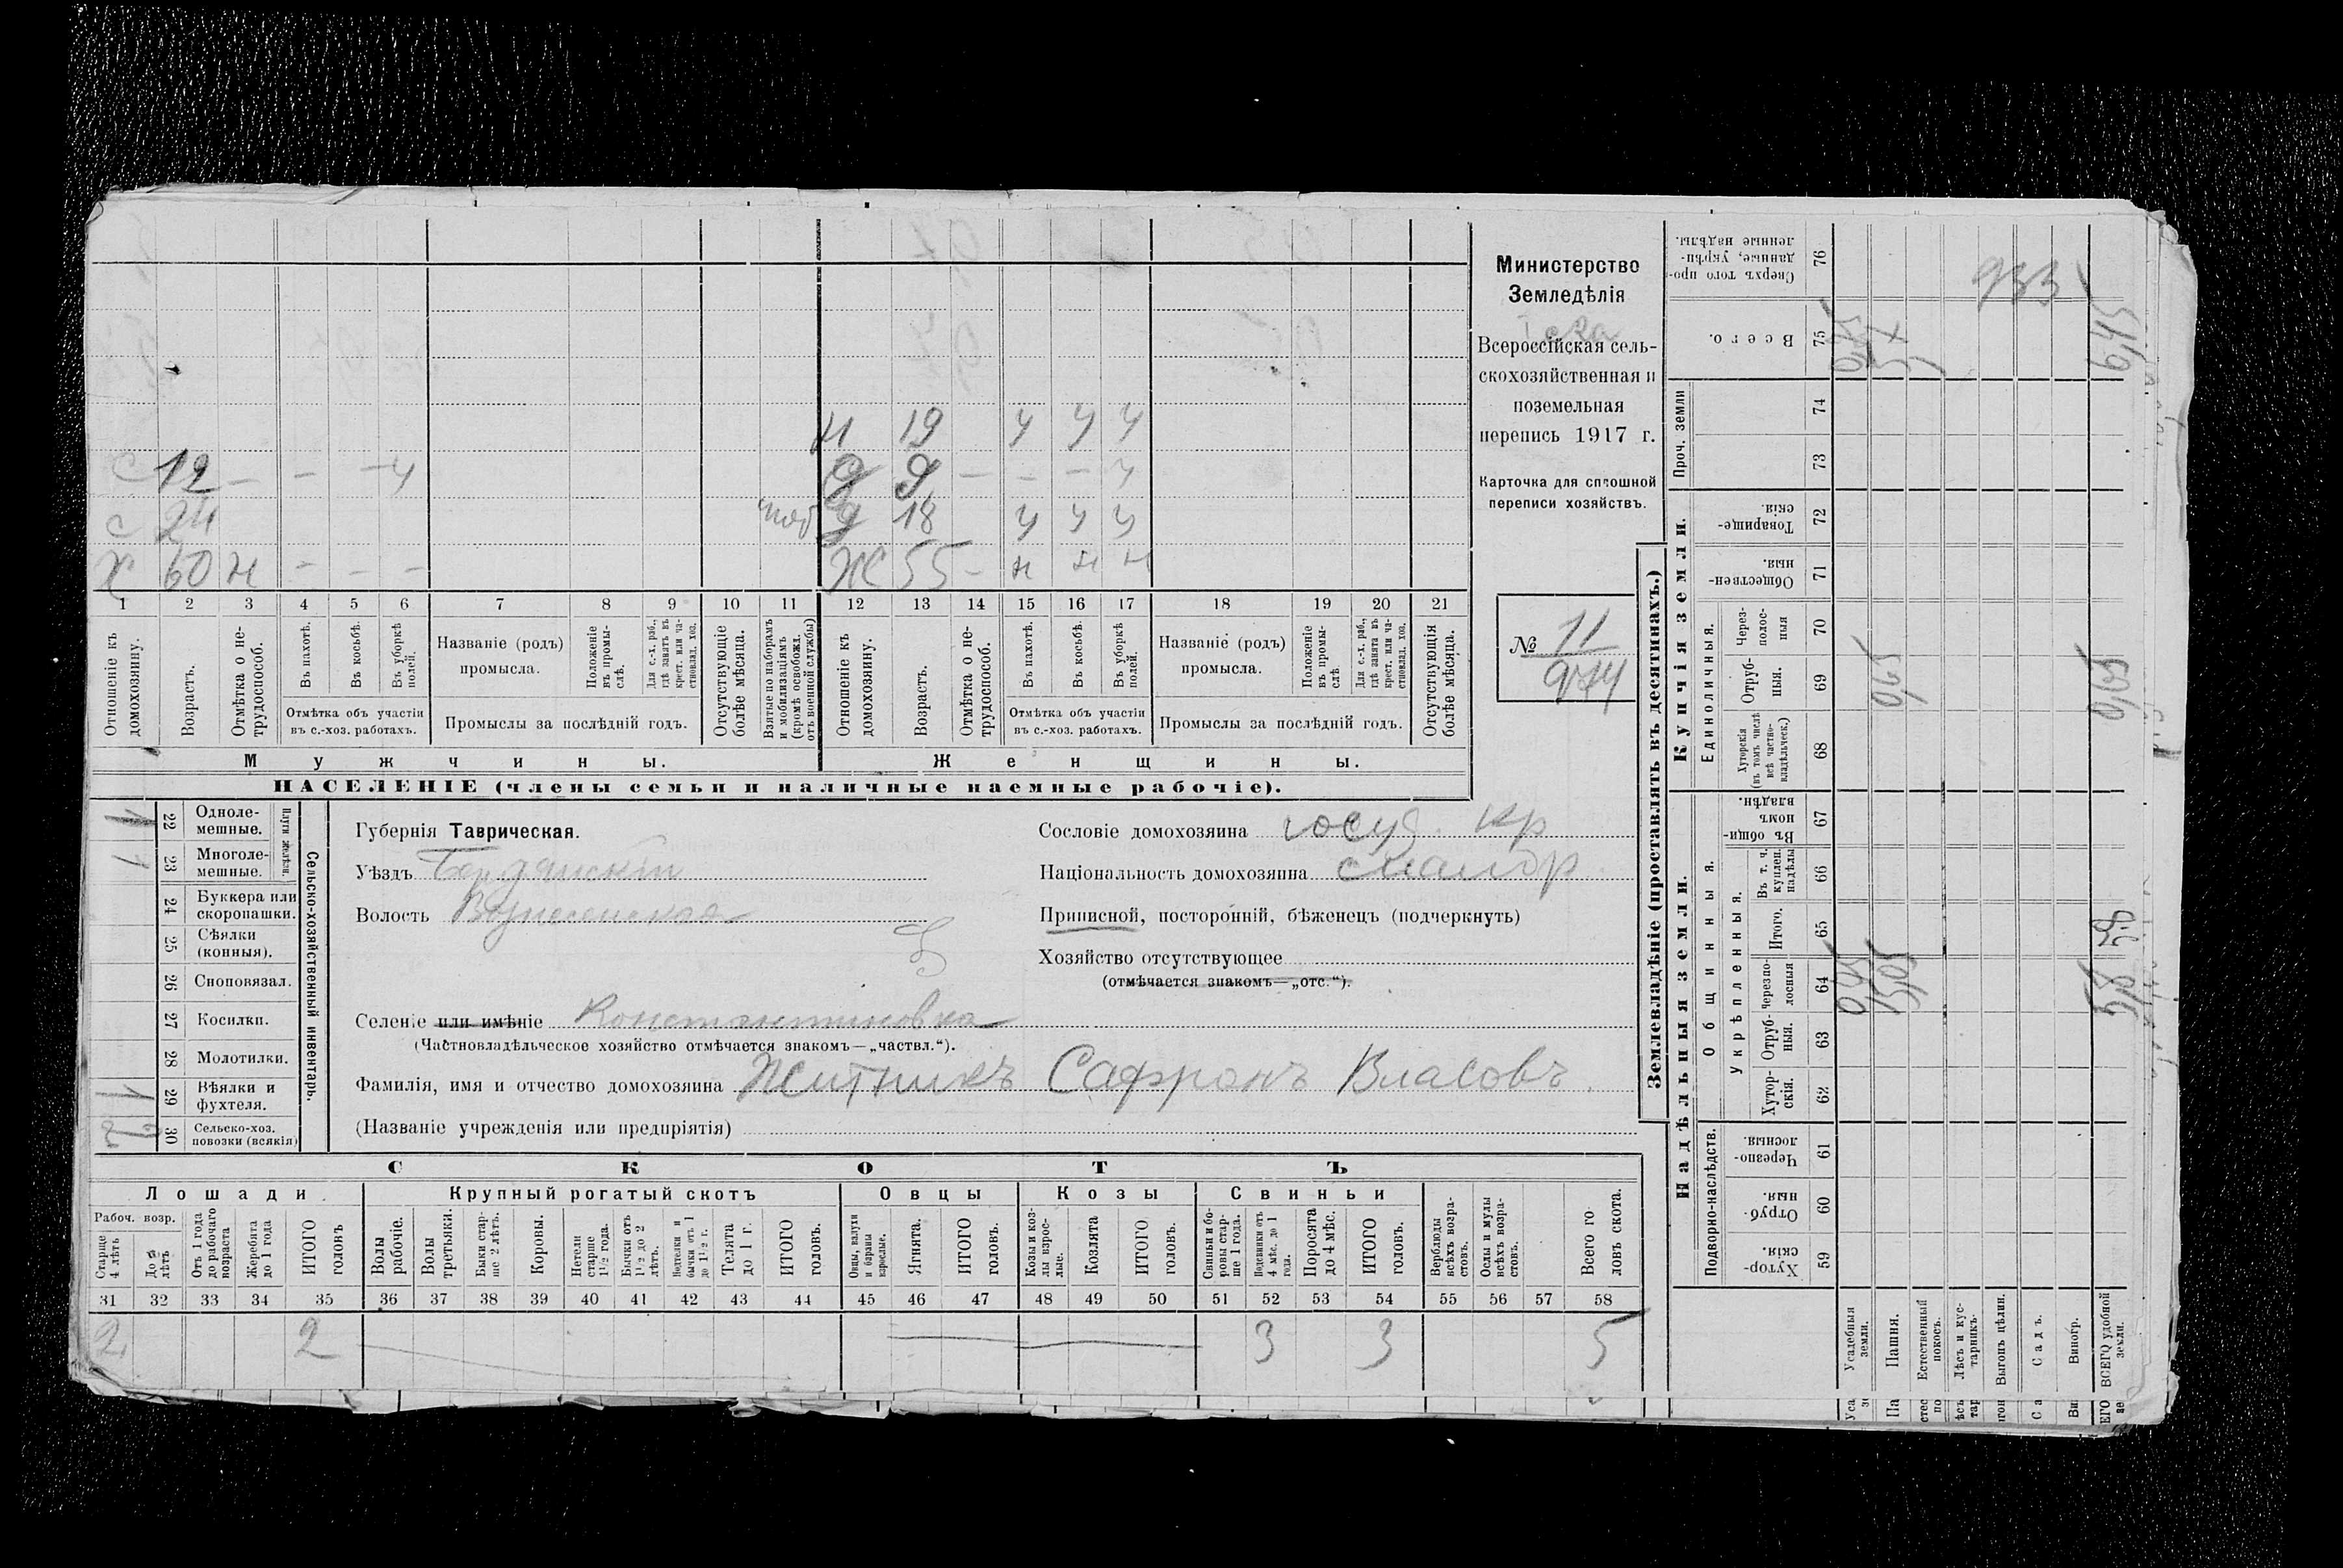 Министерство
Земледѣлія
Всероссійская сель-
скохозяйственная и
поземельная
перепись 1917 г.
Карточка для сплошной
переписи хозяйствъ.
№ 11
974
Н 19 У У У
С 12 — — — У
Д 9 — — — У
С 24
Д 18 У У У
Х 60 Н — — —
Ж 55 — Н Н Н
1 2 3 4 5 6 7 8 9 10 11 12 13 14 15 16 17 18 19 20 21
Отношеніе къ домохозяину.
Возрастъ.
Отмѣтка о не-трудоспособ.
Въ пахотѣ.
Въ косьбѣ.
Въ уборкѣ полей.
Отмѣтка объ участіи
въ с.-хоз. работахъ.
Названіе (родъ)
промысла.
Положеніе въ промы-слѣ.
Для с.-х. раб., гдѣ занятъ въ крест. или ча-стновлад. хоз.
Промыслы за послѣдній годъ.
Отсутствующіе болѣе мѣсяца.
Взятые по наборамъ и мобилизаціямъ (кромѣ освобожд. отъ военной службы)
Отношеніе къ домохозяину.
Возрастъ.
Отмѣтка о не-трудоспособ.
Въ пахотѣ.
Въ косьбѣ.
Въ уборкѣ полей.
Отмѣтка объ участіи
въ с.-хоз. работахъ.
Названіе (родъ)
промысла.
Положеніе въ промы-слѣ.
Для с.-х. раб., гдѣ занята въ крест. или ча-стновлад. хоз.
Промыслы за послѣдній годъ.
Отсутствующія болѣе мѣсяца.
Мужчины.
Женщины.
НАСЕЛЕНІЕ (члены семьи и наличные наемные рабочіе).
Сельско-хозяйственный инвентарь.
Плуги желѣзн.
1 22 Одноле-мешные.
1 23 Многоле-мешные.
24 Буккера или скоропашки.
25 Сѣялки (конныя).
26 Сноповязал.
27 Косилки.
28 Молотилки.
1 29 Вѣялки и фухтеля.
2 30 Сельско-хоз. повозки (всякія)
Губернія Таврическая.
Уѣздъ Бердянскій
Волость Вознесенская
Селеніе или имѣніе Константиновка
(Частновладѣльческое хозяйство отмѣчается знакомъ—„частвл.“).
Фамилія, имя и отчество домохозяина Житникъ Сафронъ Власовъ
(Названіе учрежденія или предпріятія)
Сословіе домохозяина госуд. кр
Національность домохозяина
Приписной, посторонній, бѣженецъ (подчеркнуть)
Хозяйство отсутствующее
(отмѣчается знакомъ—„отс.“).
СКОТЪ
Лошади.
Крупный рогатый скотъ
Овцы
Козы
Свиньи
Рабоч. возр.
Старше 4 лѣтъ
До 4 лѣтъ
Отъ 1 года до рабочаго возраста
Жеребята до 1 года
ИТОГО головъ
Волы рабочіе.
Волы третьяки.
Быки стар-ше 2 лѣтъ.
Коровы.
Нетели старше 1½ года.
Бычки отъ 1½ до 2 лѣтъ.
Нетелки и бычки отъ 1 до 1½ г.
Телята до 1 г.
ИТОГО головъ.
Овцы, валухи и бараны взрослые.
Ягнята.
ИТОГО головъ.
Козы и коз-лы взрос-лые.
Козлята
ИТОГО головъ.
Свиньи и бо-ровы стар-ше 1 года.
Подсвинки отъ 4 мѣс. до 1 года.
Поросята до 4 мѣс.
ИТОГО головъ.
Верблюды всѣхъ возра-стовъ.
Ослы и мулы всѣхъ возра-стовъ.
Всего го-ловъ скота.
31 32 33 34 35 36 37 38 39 40 41 42 43 44 45 46 47 48 49 50 51 52 53 54 55 56 57 58
2 2 3 3 5
Землевладѣніе (проставлять въ десятинахъ.)
Надѣльныя земли.
Купчія земли.
Проч. земли
Подворно-наслѣдств.
Общинныя.
Укрѣпленныя.
Единоличныя.
Хутор-скія. 59
Отруб-ныя. 60
Черезпо-лосныя. 61
Хутор-скія. 62
Отруб-ныя. 63
Черезпо-лосныя 64
Итого. 65
Въ т. ч. куплен. надѣлы 66
Въ общин-номъ владѣн. 67
Хуторскія (въ томъ числѣ всѣ частно-владѣльческ.) 68
Отруб-ныя. 69
Через-полос-ныя 70
Обществен-ныя. 71
Товарище-скія. 72
73
74
Всего. 75
Сверхъ того про-данные, укрѣп-ленные надѣлы. 76
Усадебныя земли.
Пашня.
Естественный покосъ.
Лѣсъ и кус-тарникъ.
Выгонъ цѣлин.
Садъ.
Виногр.
ВСЕГО удобной земли.
0,65
0,65
933